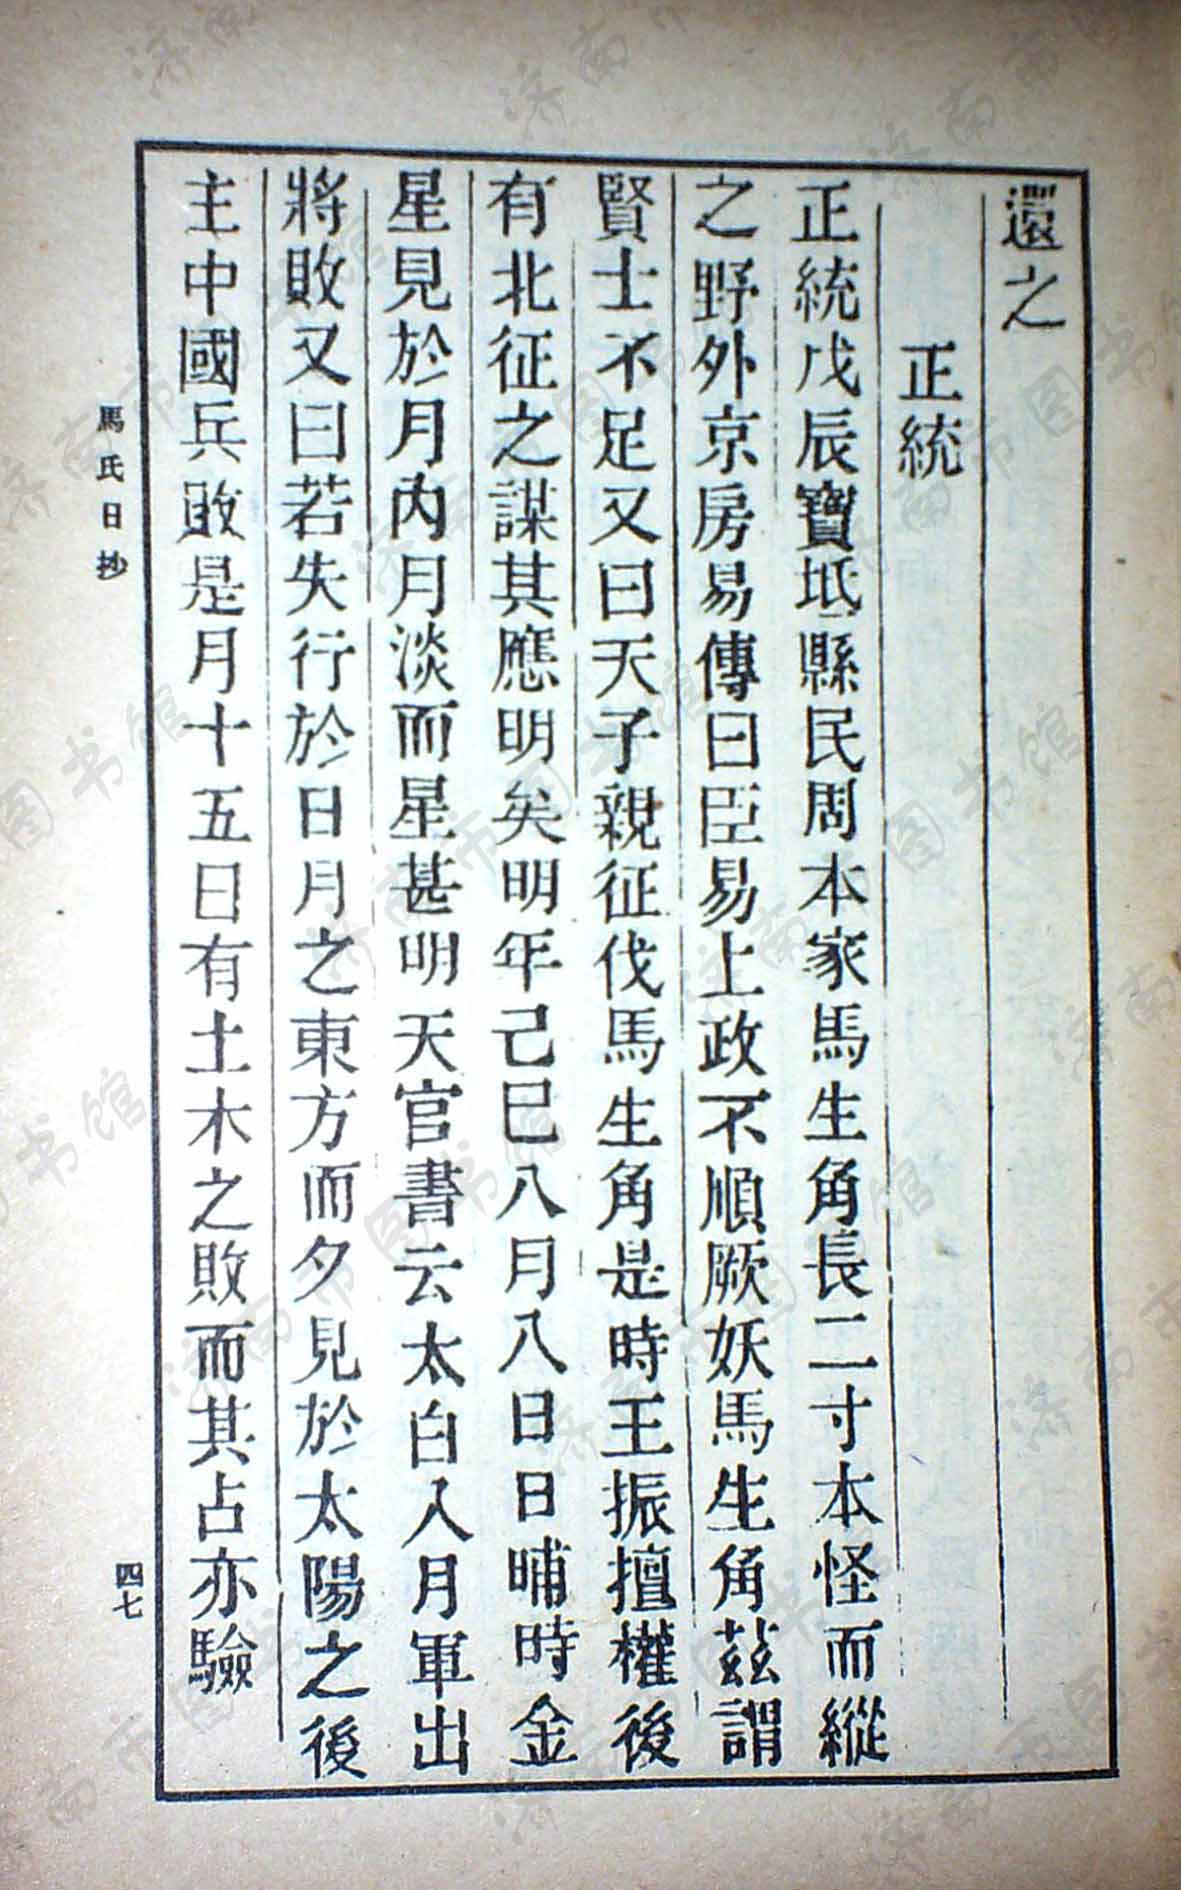 還之
正統
正統戊辰寶坻縣民周本家馬生角長二寸本怪而縱
之野外京房易傳曰臣易上政不順厥妖馬生角茲謂
賢士不足又曰天子親征伐馬生角是時王振擅權後
有北征之謀其應明矣明年己巳八月八日日晡時金
星見於月內月淡而星甚明天官書云太白入月軍出
將敗又曰若失行於日月之東方而夕見於太陽之後
主中國兵敗是月十五日有土木之敗而其占亦驗
馬氏日抄
四七
济南市图书馆